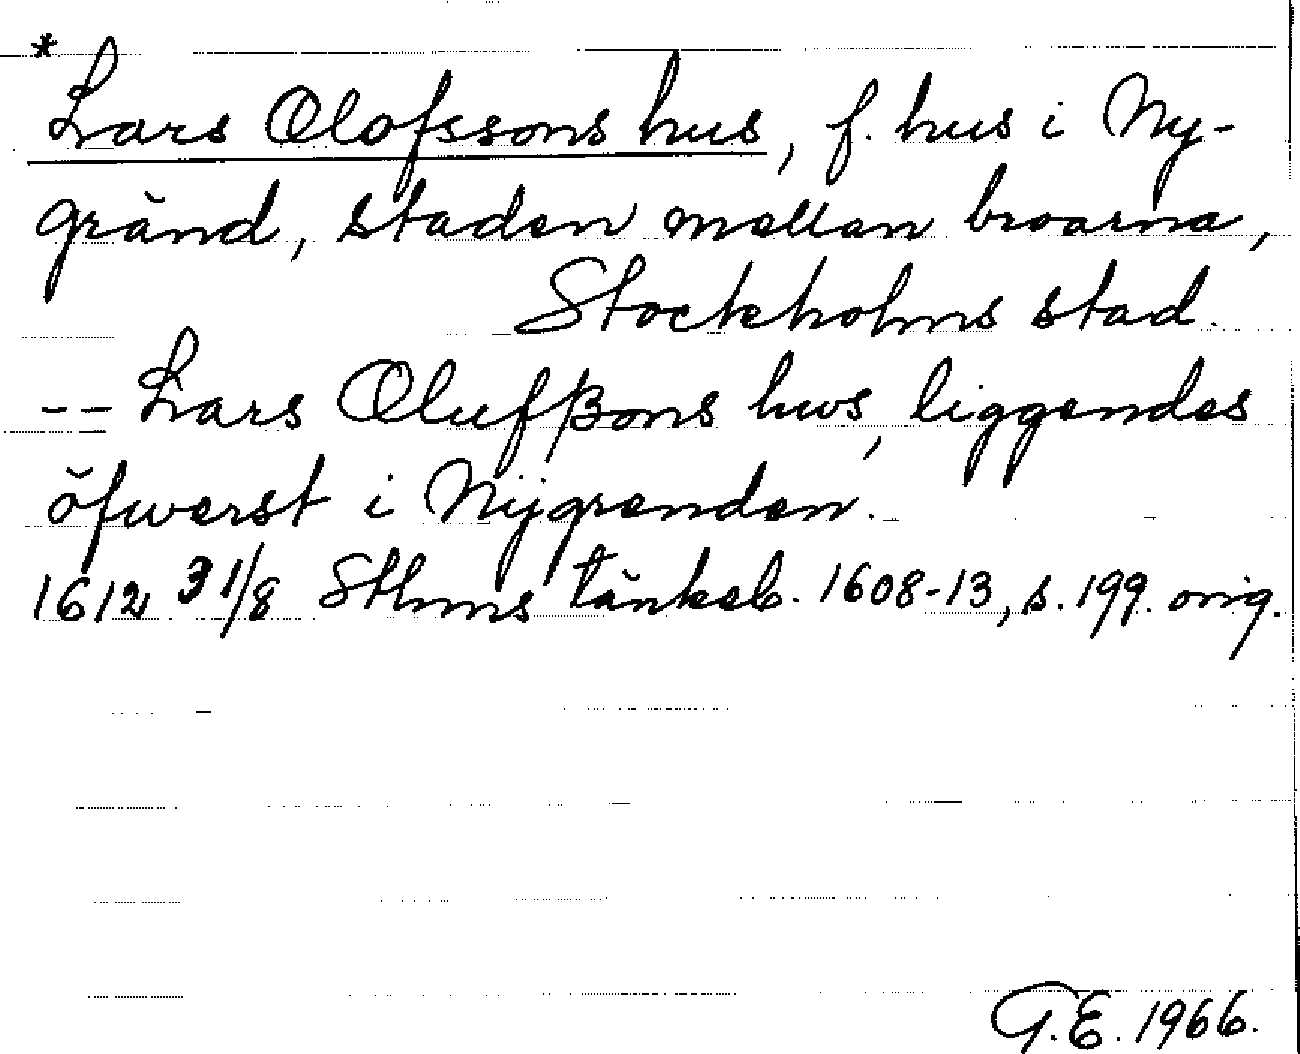 * Lars Olofssons hus, f. hus i Ny-
gränd, staden mellan broarna,
Stockholms stad.
-- Lars Olufßons hws, liggendes
öfwerst i Nijgrenden.
1612 31/8 Sthms tänkeb. 1608-13, s. 199. orig.
G.E. 1966.